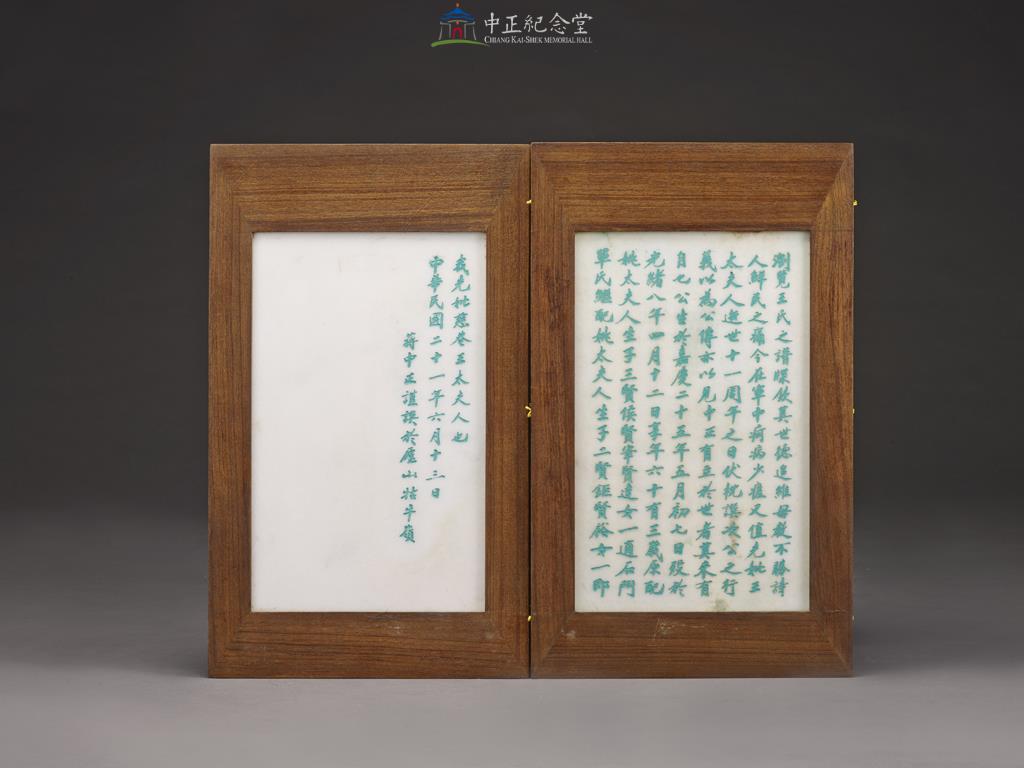 中正紀念堂
CHIANG KAI-SHEK MEMORIAL HALL
瀏覽王氏之譜牒飲其世德追維母教不勝詩
人鮮民之痛今在軍中痾病少痊又值先妣王
太夫人逝世十一周年之日伏枕謹次公之行
義以為公傳亦以見中正有立於世者其來有
自也公生於嘉慶二十五年五月初七日歿於
光緒八年四月十二日享年六十有三歲原配
姚太夫人生子三賢侯賢宰賢達女一適石門
單氏繼配姚太夫人生子二賢鉅賢裕女一即
我先妣慈菴王太夫人也
中華民國二十一年六月十三日
蔣中正謹譔於廬山牯牛嶺